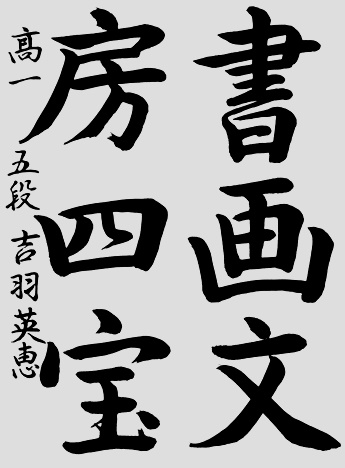 書画文
房四宝
高一 五段 吉羽英恵